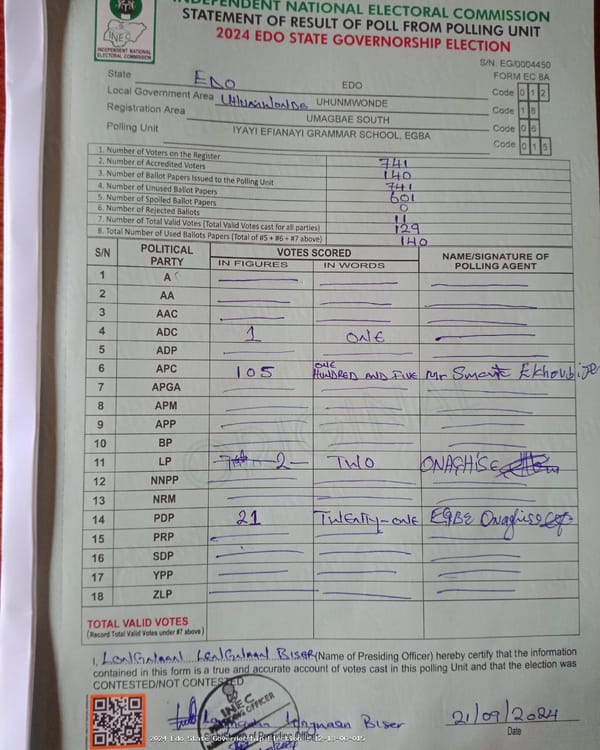 INDEPENDENT NATIONAL ELECTORAL COMMISSION
STATEMENT OF RESULT OF POLL FROM POLLING UNIT
2024 EDO STATE GOVERNORSHIP ELECTION
INEC
INDEPENDENT NATIONAL
ELECTORAL COMMISSION
S/N. EG/0004450
FORM EC 8A
State EDO EDO Code 0 1 2
Local Government Area UHUNMWONDE UHUNMWONDE Code 1 8
Registration Area UMAGBAE SOUTH Code 0 6
Polling Unit IYAYI EFIANAYI GRAMMAR SCHOOL, EGBA Code 0 1 5
1. Number of Voters on the Register 741
2. Number of Accredited Voters 140
3. Number of Ballot Papers Issued to the Polling Unit 741
4. Number of Unused Ballot Papers 601
5. Number of Spoiled Ballot Papers 0
6. Number of Rejected Ballots 11
7. Number of Total Valid Votes (Total Valid Votes cast for all parties) 129
8. Total Number of Used Ballots Papers (Total of #5 + #6 + #7 above) 140
S/N POLITICAL PARTY VOTES SCORED NAME/SIGNATURE OF POLLING AGENT
IN FIGURES IN WORDS
1 A
2 AA
3 AAC
4 ADC 1 ONE
5 ADP
6 APC 105 ONE HUNDRED AND FIVE Mr Smart
7 APGA
8 APM
9 APP
10 BP
11 LP 2 TWO ONAGHISE
12 NNPP
13 NRM
14 PDP 21 TWENTY-ONE EGBE Onaghise
15 PRP
16 SDP
17 YPP
18 ZLP
TOTAL VALID VOTES
(Record Total Valid Votes under #7 above)
I, (Name of Presiding Officer) hereby certify that the information
contained in this form is a true and accurate account of votes cast in this polling Unit and that the election was
CONTESTED/NOT CONTESTED
INEC
Biser
21/09/2024
Date